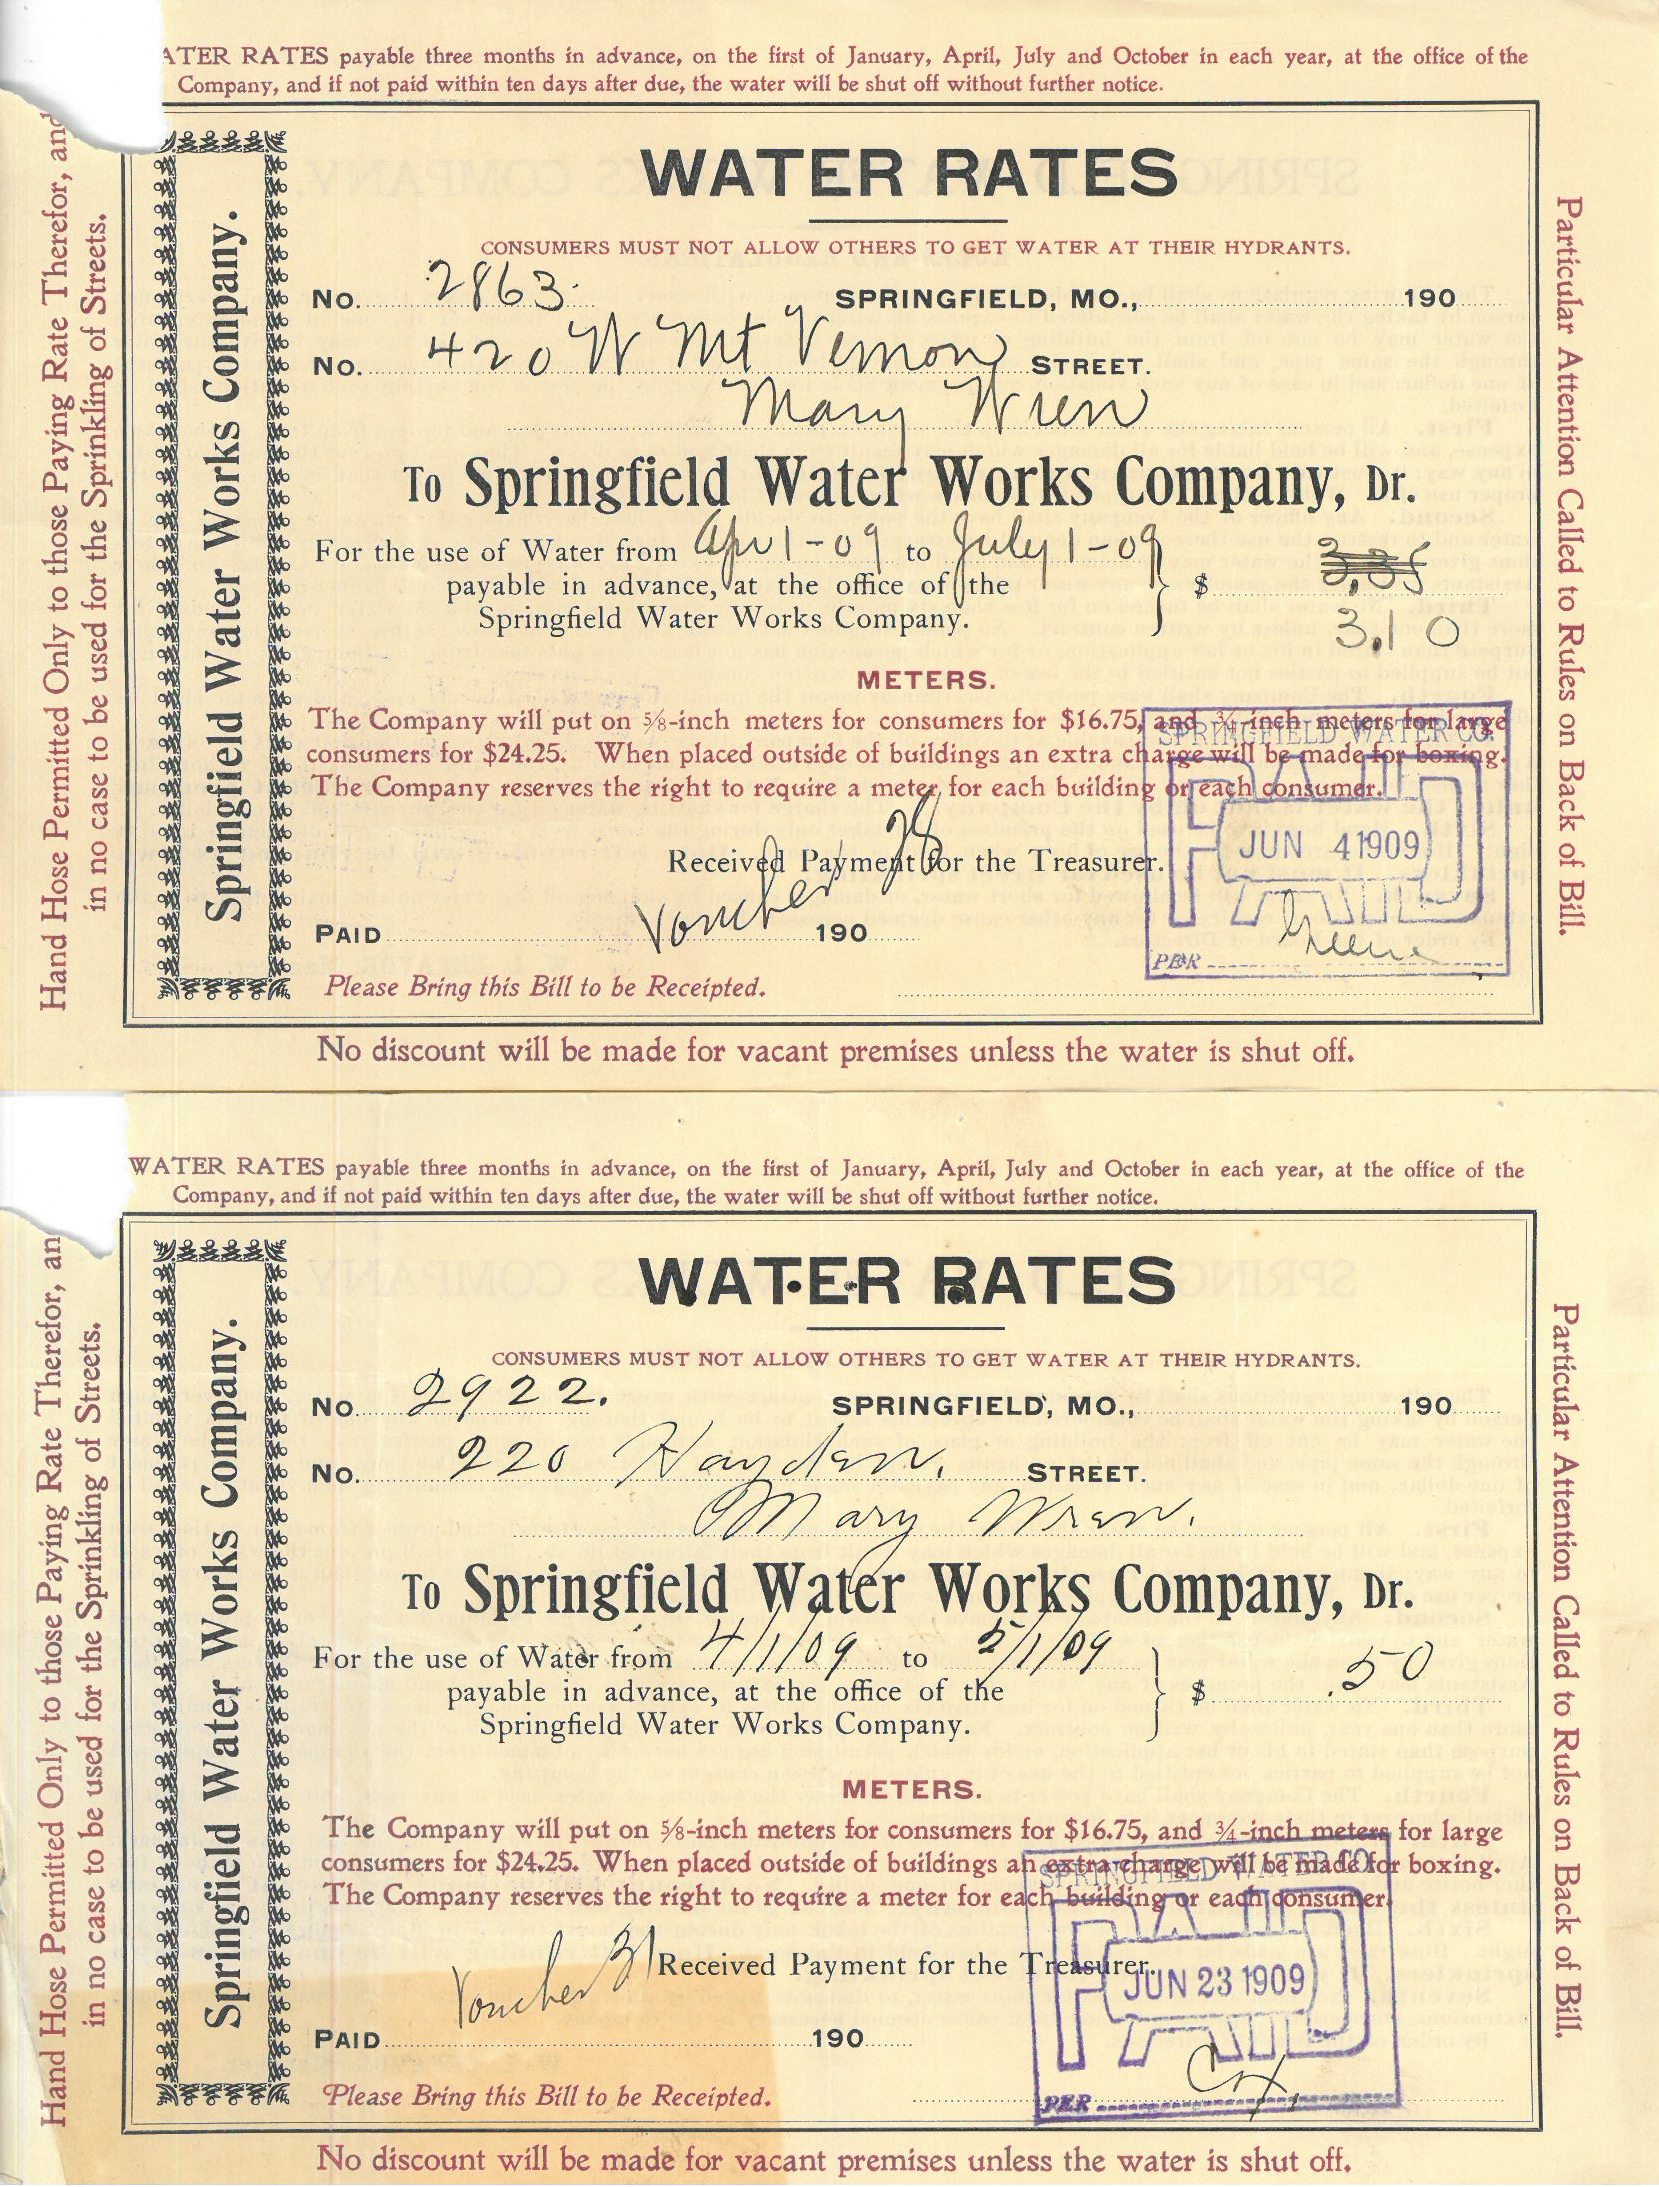 ATER RATES payable three months in advance, on the first of January, April, July and October in each year, at the office of the
Company, and if not paid within ten days after due, the water will be shut off without further notice.
Hand Hose Permitted Only to those Paying Rate Therefor, and
in no case to be used for the Sprinkling of Streets.
Springfield Water Works Company.
WATER RATES
CONSUMERS MUST NOT ALLOW OTHERS TO GET WATER AT THEIR HYDRANTS.
No. 2863. SPRINGFIELD, MO., 190
No. 420 W Mt Vernon STREET.
Mary Wren
To Springfield Water Works Company, Dr.
For the use of Water from Apr 1-09 to July 1-09
payable in advance, at the office of the $ 3.35
Springfield Water Works Company. 3.10
METERS.
The Company will put on 5/8-inch meters for consumers for $16.75, and 3/4-inch meters for large
consumers for $24.25. When placed outside of buildings an extra charge will be made for boxing.
The Company reserves the right to require a meter for each building or each consumer.
Received Payment for the Treasurer.
Voucher 28
PAID 190
Please Bring this Bill to be Receipted.
SPRINGFIELD WATER CO.
PAID
JUN 4 1909
PER Greene
Particular Attention Called to Rules on Back of Bill.
No discount will be made for vacant premises unless the water is shut off.
WATER RATES payable three months in advance, on the first of January, April, July and October in each year, at the office of the
Company, and if not paid within ten days after due, the water will be shut off without further notice.
Hand Hose Permitted Only to those Paying Rate Therefor, an
in no case to be used for the Sprinkling of Streets.
Springfield Water Works Company.
WATER RATES
CONSUMERS MUST NOT ALLOW OTHERS TO GET WATER AT THEIR HYDRANTS.
No. 2922. SPRINGFIELD, MO., 190
No. 220 Hayden. STREET.
Mary Wren.
To Springfield Water Works Company, Dr.
For the use of Water from 4/1/09 to 5/1/09
payable in advance, at the office of the $ .50
Springfield Water Works Company.
METERS.
The Company will put on 5/8-inch meters for consumers for $16.75, and 3/4-inch meters for large
consumers for $24.25. When placed outside of buildings an extra charge will be made for boxing.
The Company reserves the right to require a meter for each building or each consumer.
Voucher 31 Received Payment for the Treasurer.
PAID 190
Please Bring this Bill to be Receipted.
SPRINGFIELD WATER CO.
PAID
JUN 23 1909
PER
Particular Attention Called to Rules on Back of Bill.
No discount will be made for vacant premises unless the water is shut off.